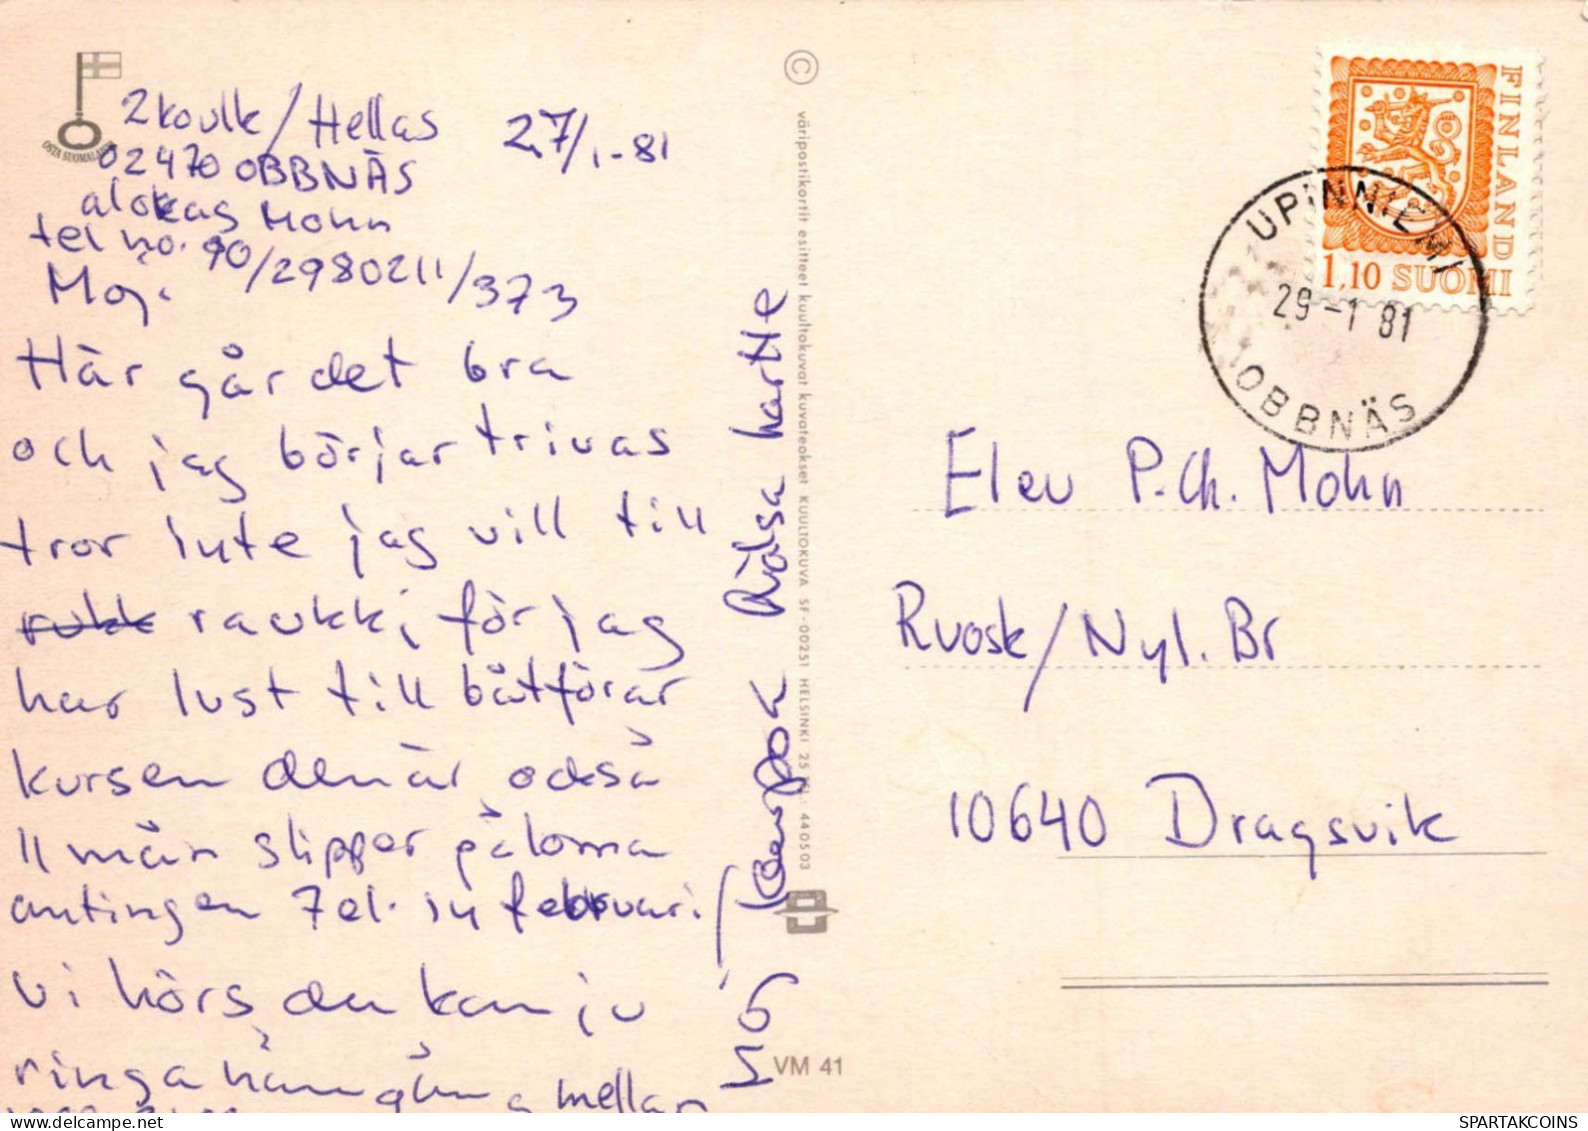 OSTA SUOMALAISTA
2koulk/Hellas 27/1-81
02470 OBBNÄS
alokas Mohn
tel no. 90/2980211/373
Moj.
Här går det bra
och jag börjar trivas
tror inte jag vill till
rukk raukki, för jag
har lust till båtförar
kursen den är också
11 mån slipper på loma
antingen 7 el. 14 februari
vi hörs, du kan ju
ringa hän gång mellan
Hälsa
©
väripostikortit esitteet kuultokuvat kuvateokset KUULTOKUVA SF-00251 HELSINKI 25 PUH. 440503
VM 41
FINLAND
1,10 SUOMI
UPINNIEMI
29-1 81
OBBNÄS
Elev P.Ch. Mohn
Rvosk/Nyl. Br
10640 Dragsvik
SPARTAKCOINS